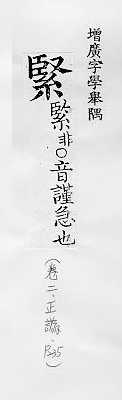 增廣字學舉隅
緊緊非○音謹急也
(卷二、正譌、P35)